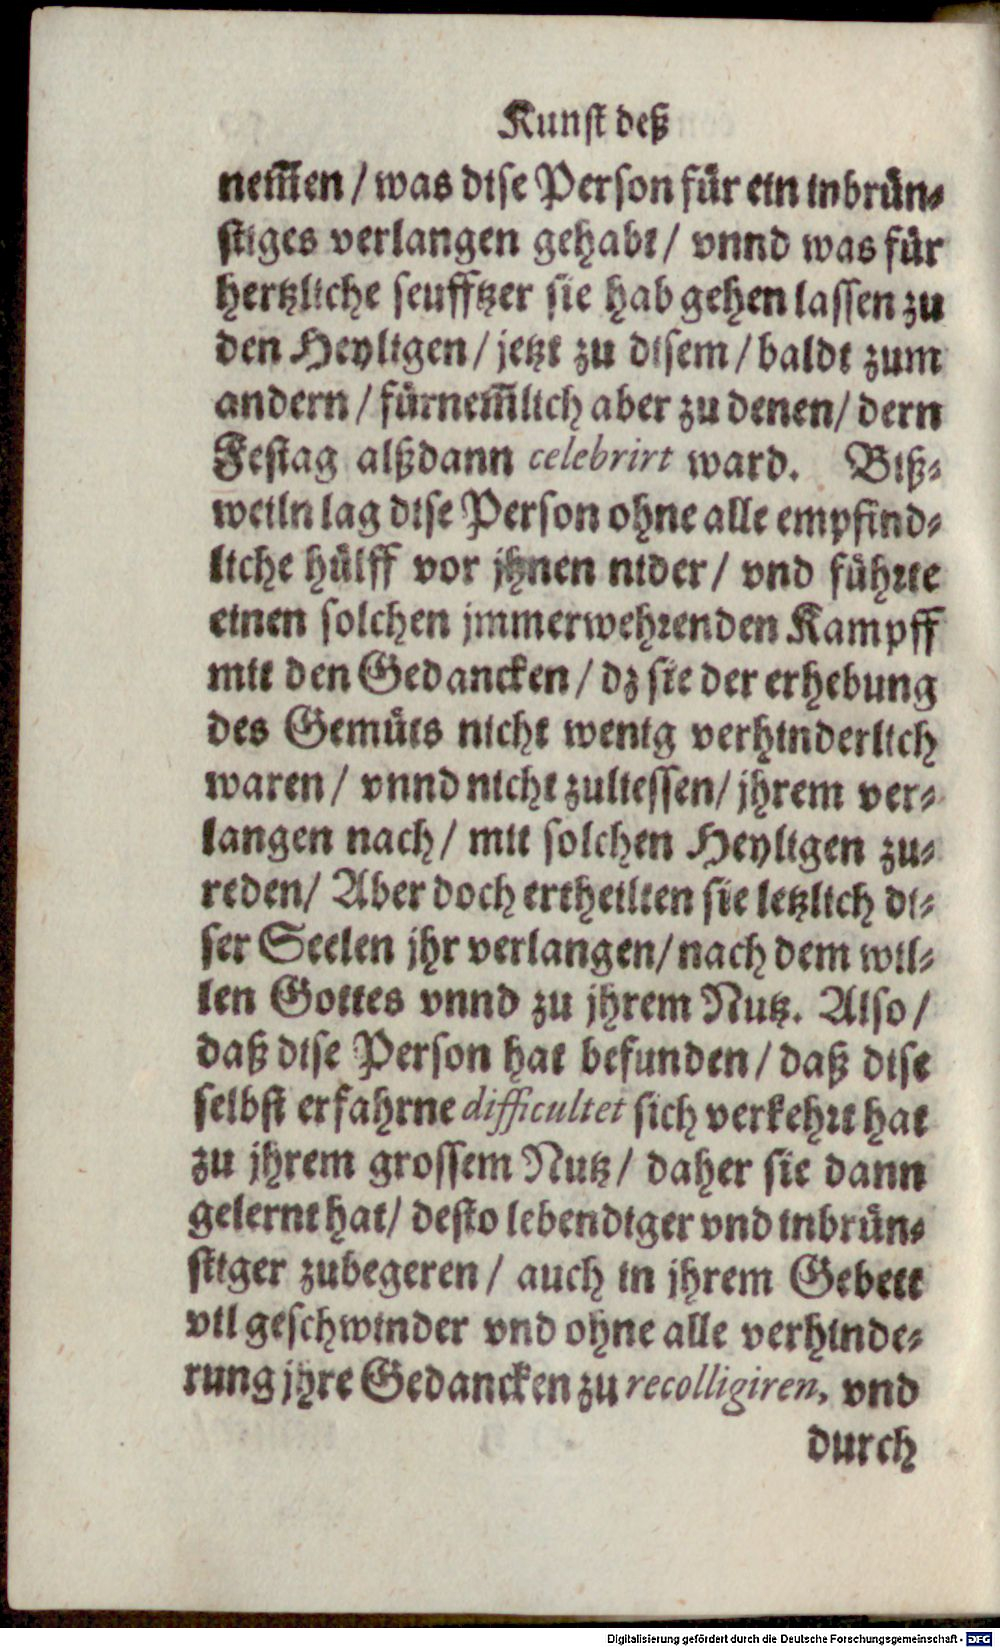 Kunst deß
nem̃en / was dise Person für ein inbrün-
stiges verlangen gehabt / vnnd was für
hertzliche seufftzer sie hab gehen lassen zu
den Heyligen / jetzt zu disem / baldt zum
andern / fürnem̃lich aber zu denen / dern
Festag alßdann celebrirt ward. Biß-
weiln lag dise Person ohne alle empfind-
liche hülff vor jhnen nider / vnd führte
einen solchen jmmerwehrenden Kampff
mit den Gedancken / dz sie der erhebung
des Gemüts nicht wenig verhinderlich
waren / vnnd nicht zuliessen / jhrem ver-
langen nach / mit solchen Heyligen zu-
reden / Aber doch ertheilten sie letzlich di-
ser Seelen jhr verlangen / nach dem wil-
len Gottes vnnd zu jhrem Nutz. Also /
daß dise Person hat befunden / daß dise
selbst erfahrne difficultet sich verkehrt hat
zu jhrem grossem Nutz / daher sie dann
gelernt hat / desto lebendiger vnd inbrün-
stiger zubegeren / auch in jhrem Gebett
vil geschwinder vnd ohne alle verhinde-
rung jhre Gedancken zu recolligiren, vnd
durch
Digitalisierung gefördert durch die Deutsche Forschungsgemeinschaft - DFG